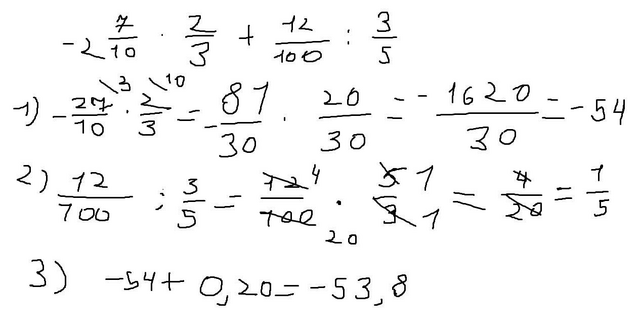 -2 7/10 · 2/3 + 12/100 : 3/5
1) - 27/10 \3 · 2/3 \10 = - 81/30 · 20/30 = - 1620/30 = -54
2) 12/100 : 3/5 = 12/100 4 20 · 5/3 1 1 = 4/20 = 1/5
3) -54 + 0,20 = -53,8